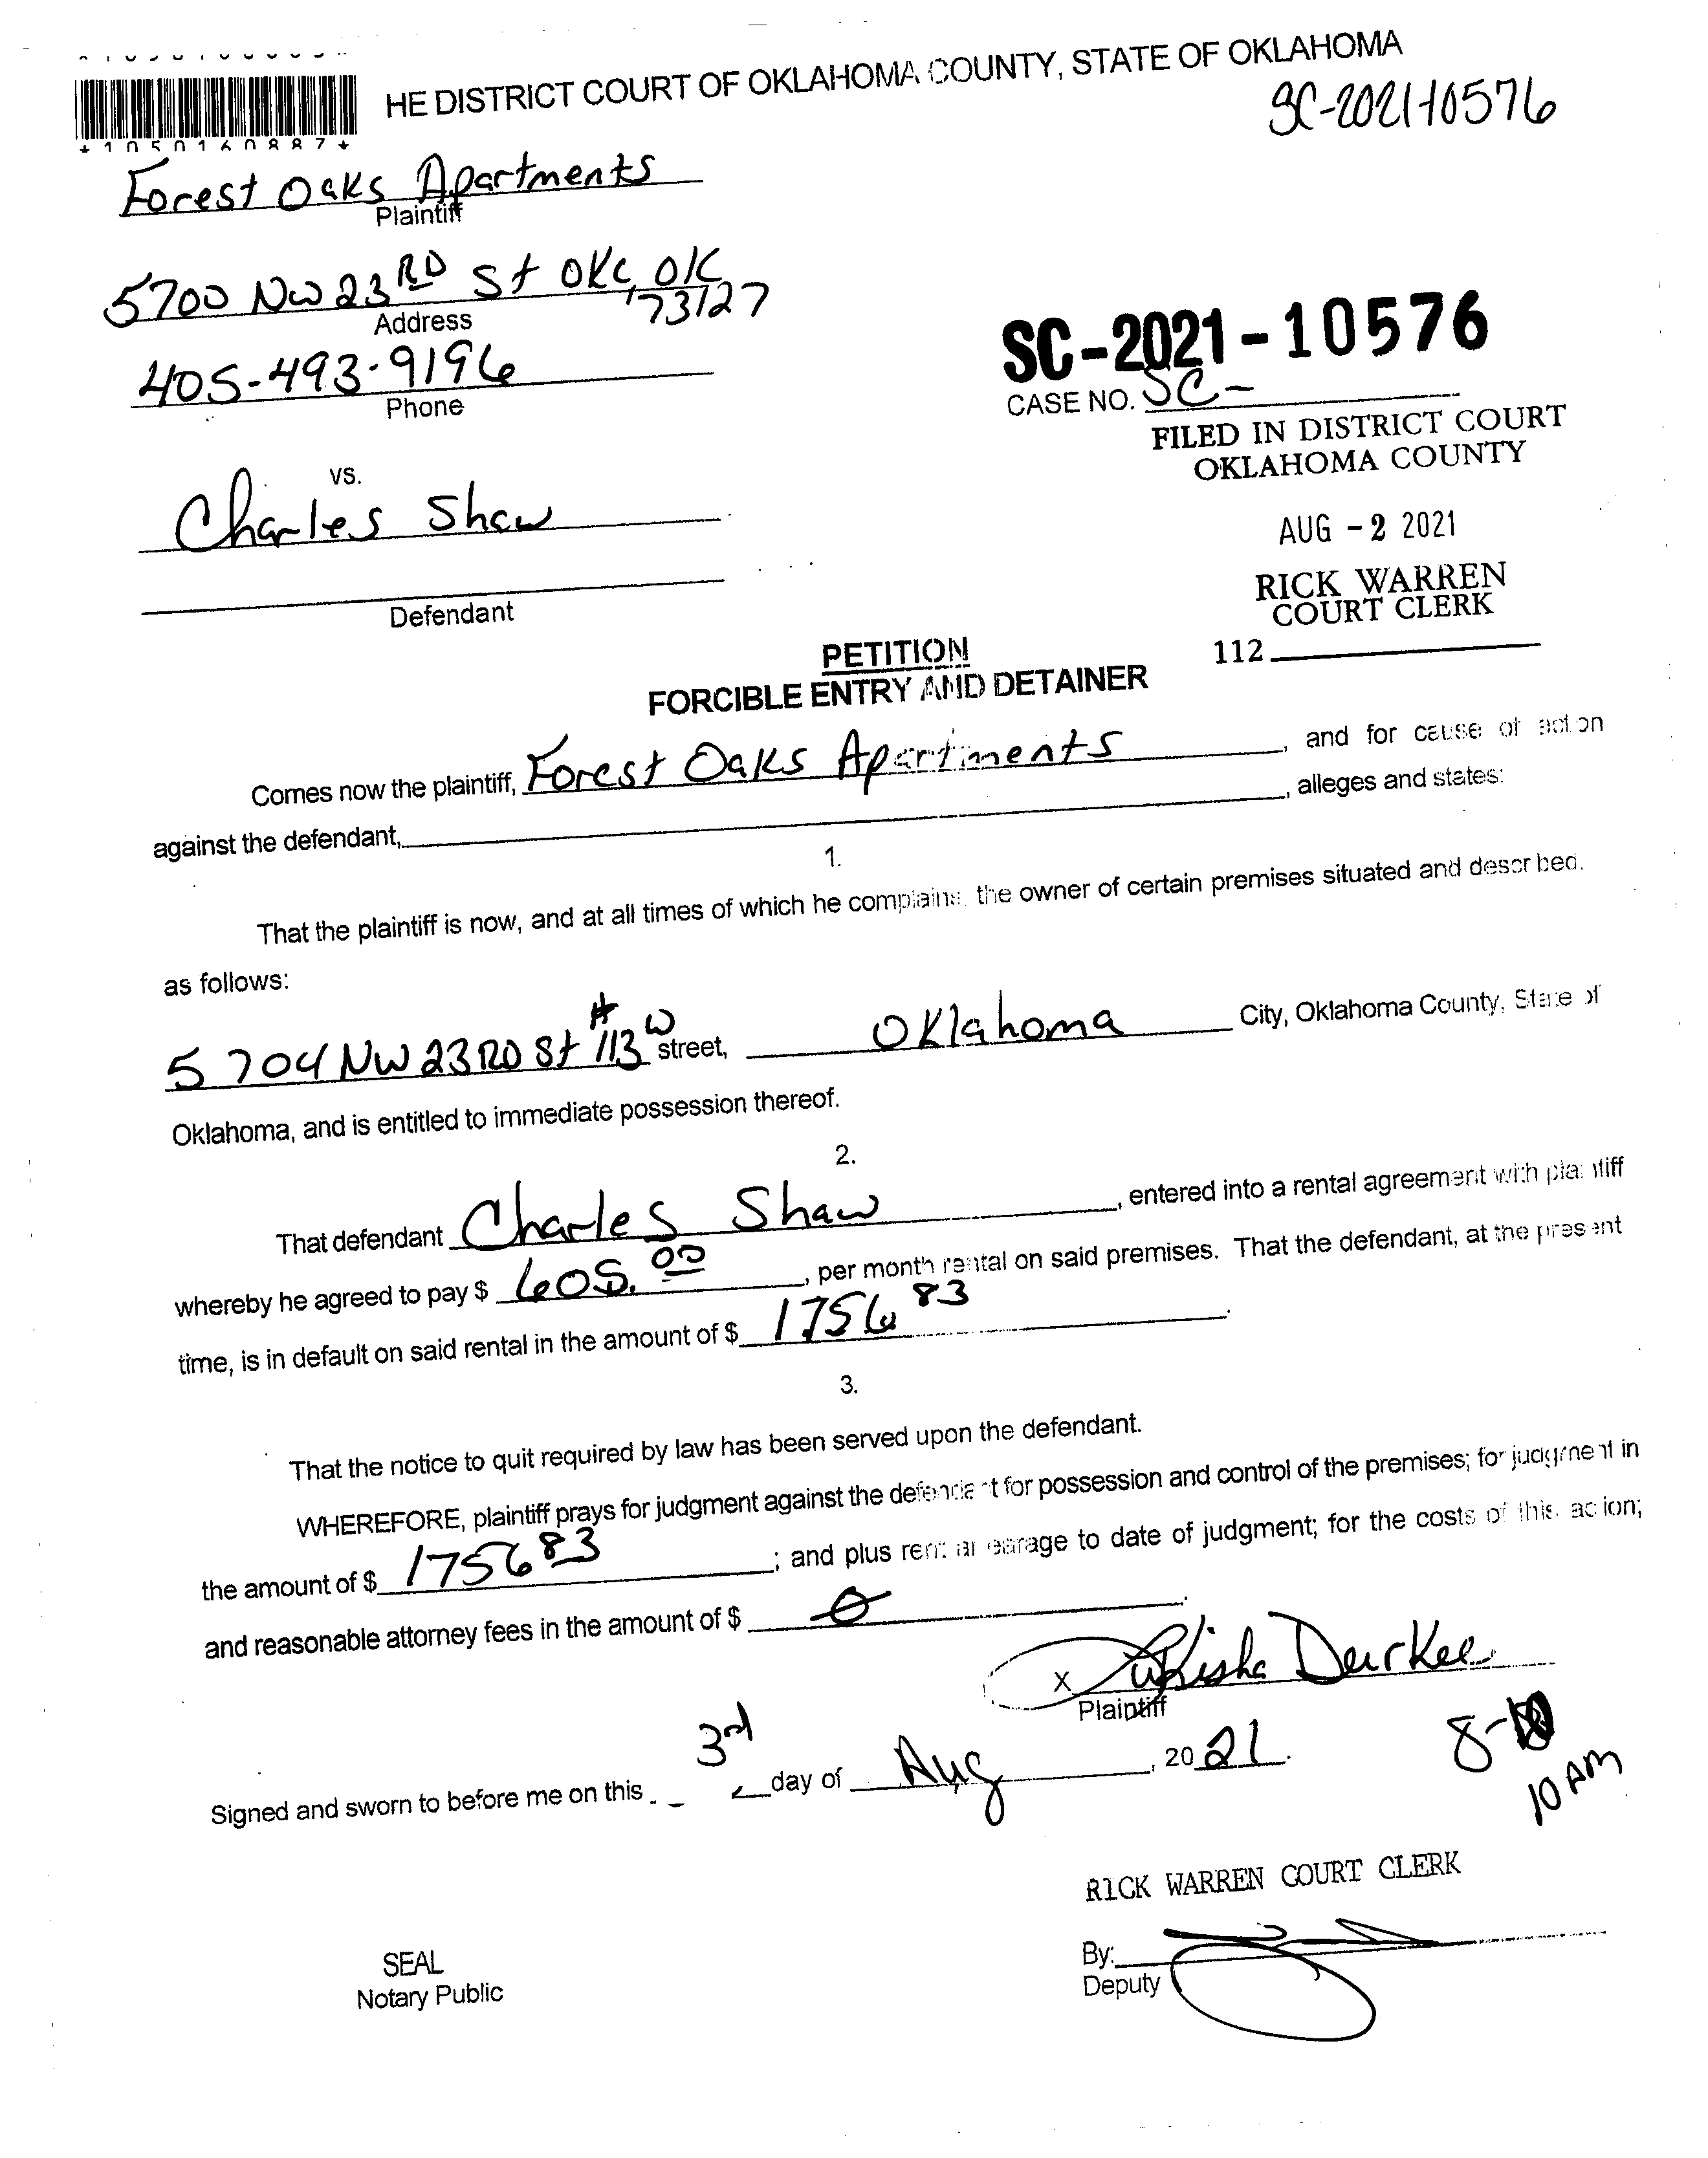 HE DISTRICT COURT OF OKLAHOMA COUNTY, STATE OF OKLAHOMA
SC-2021-10576
*1050160887*
Forest Oaks Apartments
Plaintiff
5700 NW 23RD St OKC, OK
73127
Address
405-493-9196
Phone
SC-2021-10576
CASE NO. SC-
FILED IN DISTRICT COURT
OKLAHOMA COUNTY
vs.
Charles Shaw
AUG -2 2021
RICK WARREN
COURT CLERK
Defendant
112
PETITION
FORCIBLE ENTRY AND DETAINER
Comes now the plaintiff, Forest Oaks Apartments, and for cause of action
against the defendant, , alleges and states:
1.
That the plaintiff is now, and at all times of which he complains, the owner of certain premises situated and described,
as follows:
5704 NW 23RD St #113 W street, Oklahoma City, Oklahoma County, State of
Oklahoma, and is entitled to immediate possession thereof.
2.
That defendant Charles Shaw, entered into a rental agreement with plaintiff
whereby he agreed to pay $ 605.00, per month rental on said premises. That the defendant, at the present
time, is in default on said rental in the amount of $ 1756 83.
3.
That the notice to quit required by law has been served upon the defendant.
WHEREFORE, plaintiff prays for judgment against the defendant for possession and control of the premises; for judgment in
the amount of $ 1756 83; and plus rent arrearage to date of judgment; for the costs of this action;
and reasonable attorney fees in the amount of $ 0.
X Durkee
Plaintiff
8-
10 AM
Signed and sworn to before me on this 3rd day of Aug, 20 21.
RICK WARREN COURT CLERK
SEAL
Notary Public
By:
Deputy